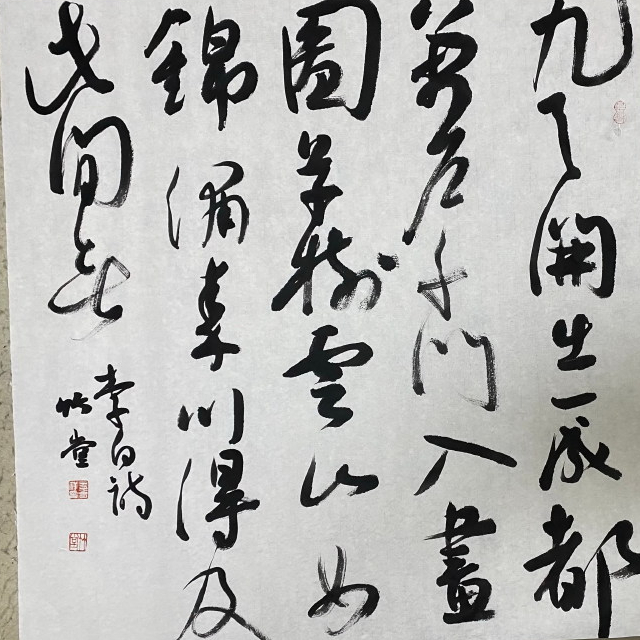 九天開出一成都
萬戶千門入畫
圖草樹雲山如
錦繡秦川得及
此間無
李白詩
堂